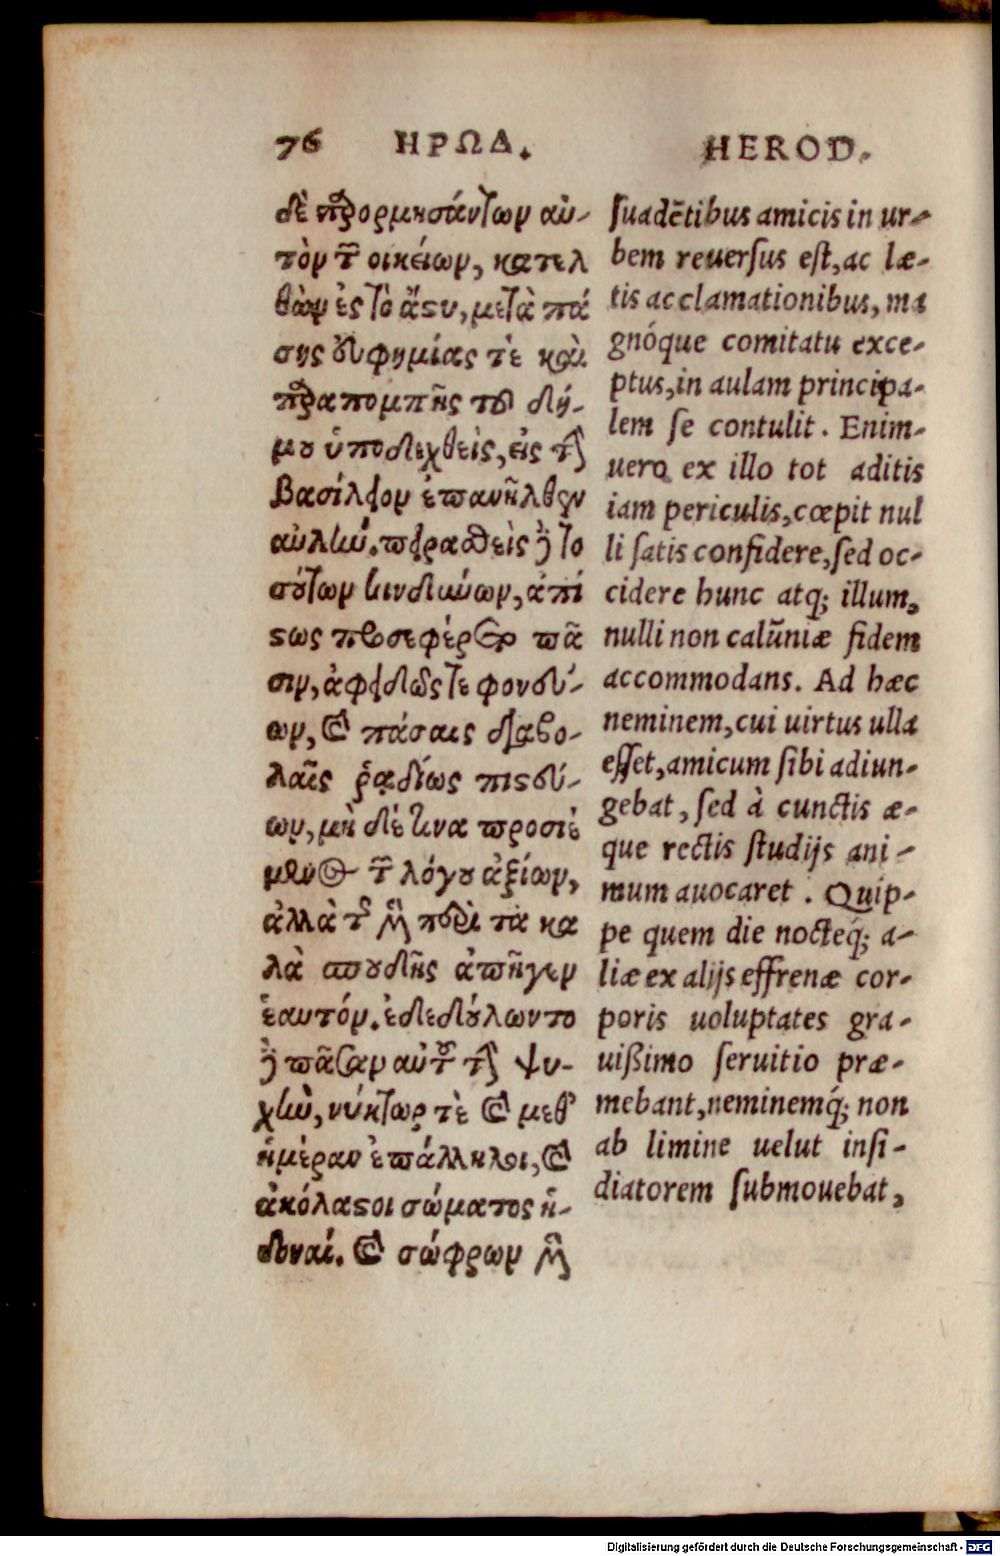 76 ΗΡΩΔ. HEROD.
δὲ παρορμησάντων αὐ-
τὸν τῶν οἰκείων, κατελ
θὼν ἐς τὸ ἄστυ, μετὰ πά
σης εὐφημίας τὲ καὶ
παραπομπῆς τοῦ δή-
μου ὑποδεχθεὶς, εἰς τὴν
βασίλειον ἐπανῆλθεν
αὐλὴν. πειραθεὶς δὲ το
σούτων κινδύνων, ἀπί
στως προσεφέρετο πᾶ
σιν, ἀφειδῶς τε φονεύ-
ων, καὶ πάσαις διαβο-
λαῖς ῥᾳδίως πιστεύ-
ων, μὴ δέ τινα προσιέ
μενος τῶν λόγου ἀξίων,
ἀλλὰ τῆς μὲν περὶ τὰ κα
λὰ σπουδῆς ἀπῆγεν
ἑαυτόν. ἐδεδούλωντο
δὲ πᾶσαν αὐτοῦ τὴν ψυ-
χὴν, νύκτωρ τὲ καὶ μεθ'
ἡμέραν ἐπάλληλοι, καὶ
ἀκόλαστοι σώματος ἡ-
δοναί. καὶ σώφρων μὲν
suadētibus amicis in ur-
bem reuersus est, ac læ-
tis acclamationibus, ma
gnóque comitatu exce-
ptus, in aulam principa-
lem se contulit. Enim-
uero ex illo tot aditis
iam periculis, cœpit nul
li satis confidere, sed oc-
cidere hunc atq; illum,
nulli non calũniæ fidem
accommodans. Ad hæc
neminem, cui uirtus ulla
esset, amicum sibi adiun-
gebat, sed à cunctis æ-
que rectis studijs ani-
mum auocaret. Quip-
pe quem die nocteq́; a-
liæ ex alijs effrenæ cor-
poris uoluptates gra-
uißimo seruitio præ-
mebant, neminemq́; non
ab limine uelut insi-
diatorem submouebat,
Digitalisierung gefördert durch die Deutsche Forschungsgemeinschaft - DFG